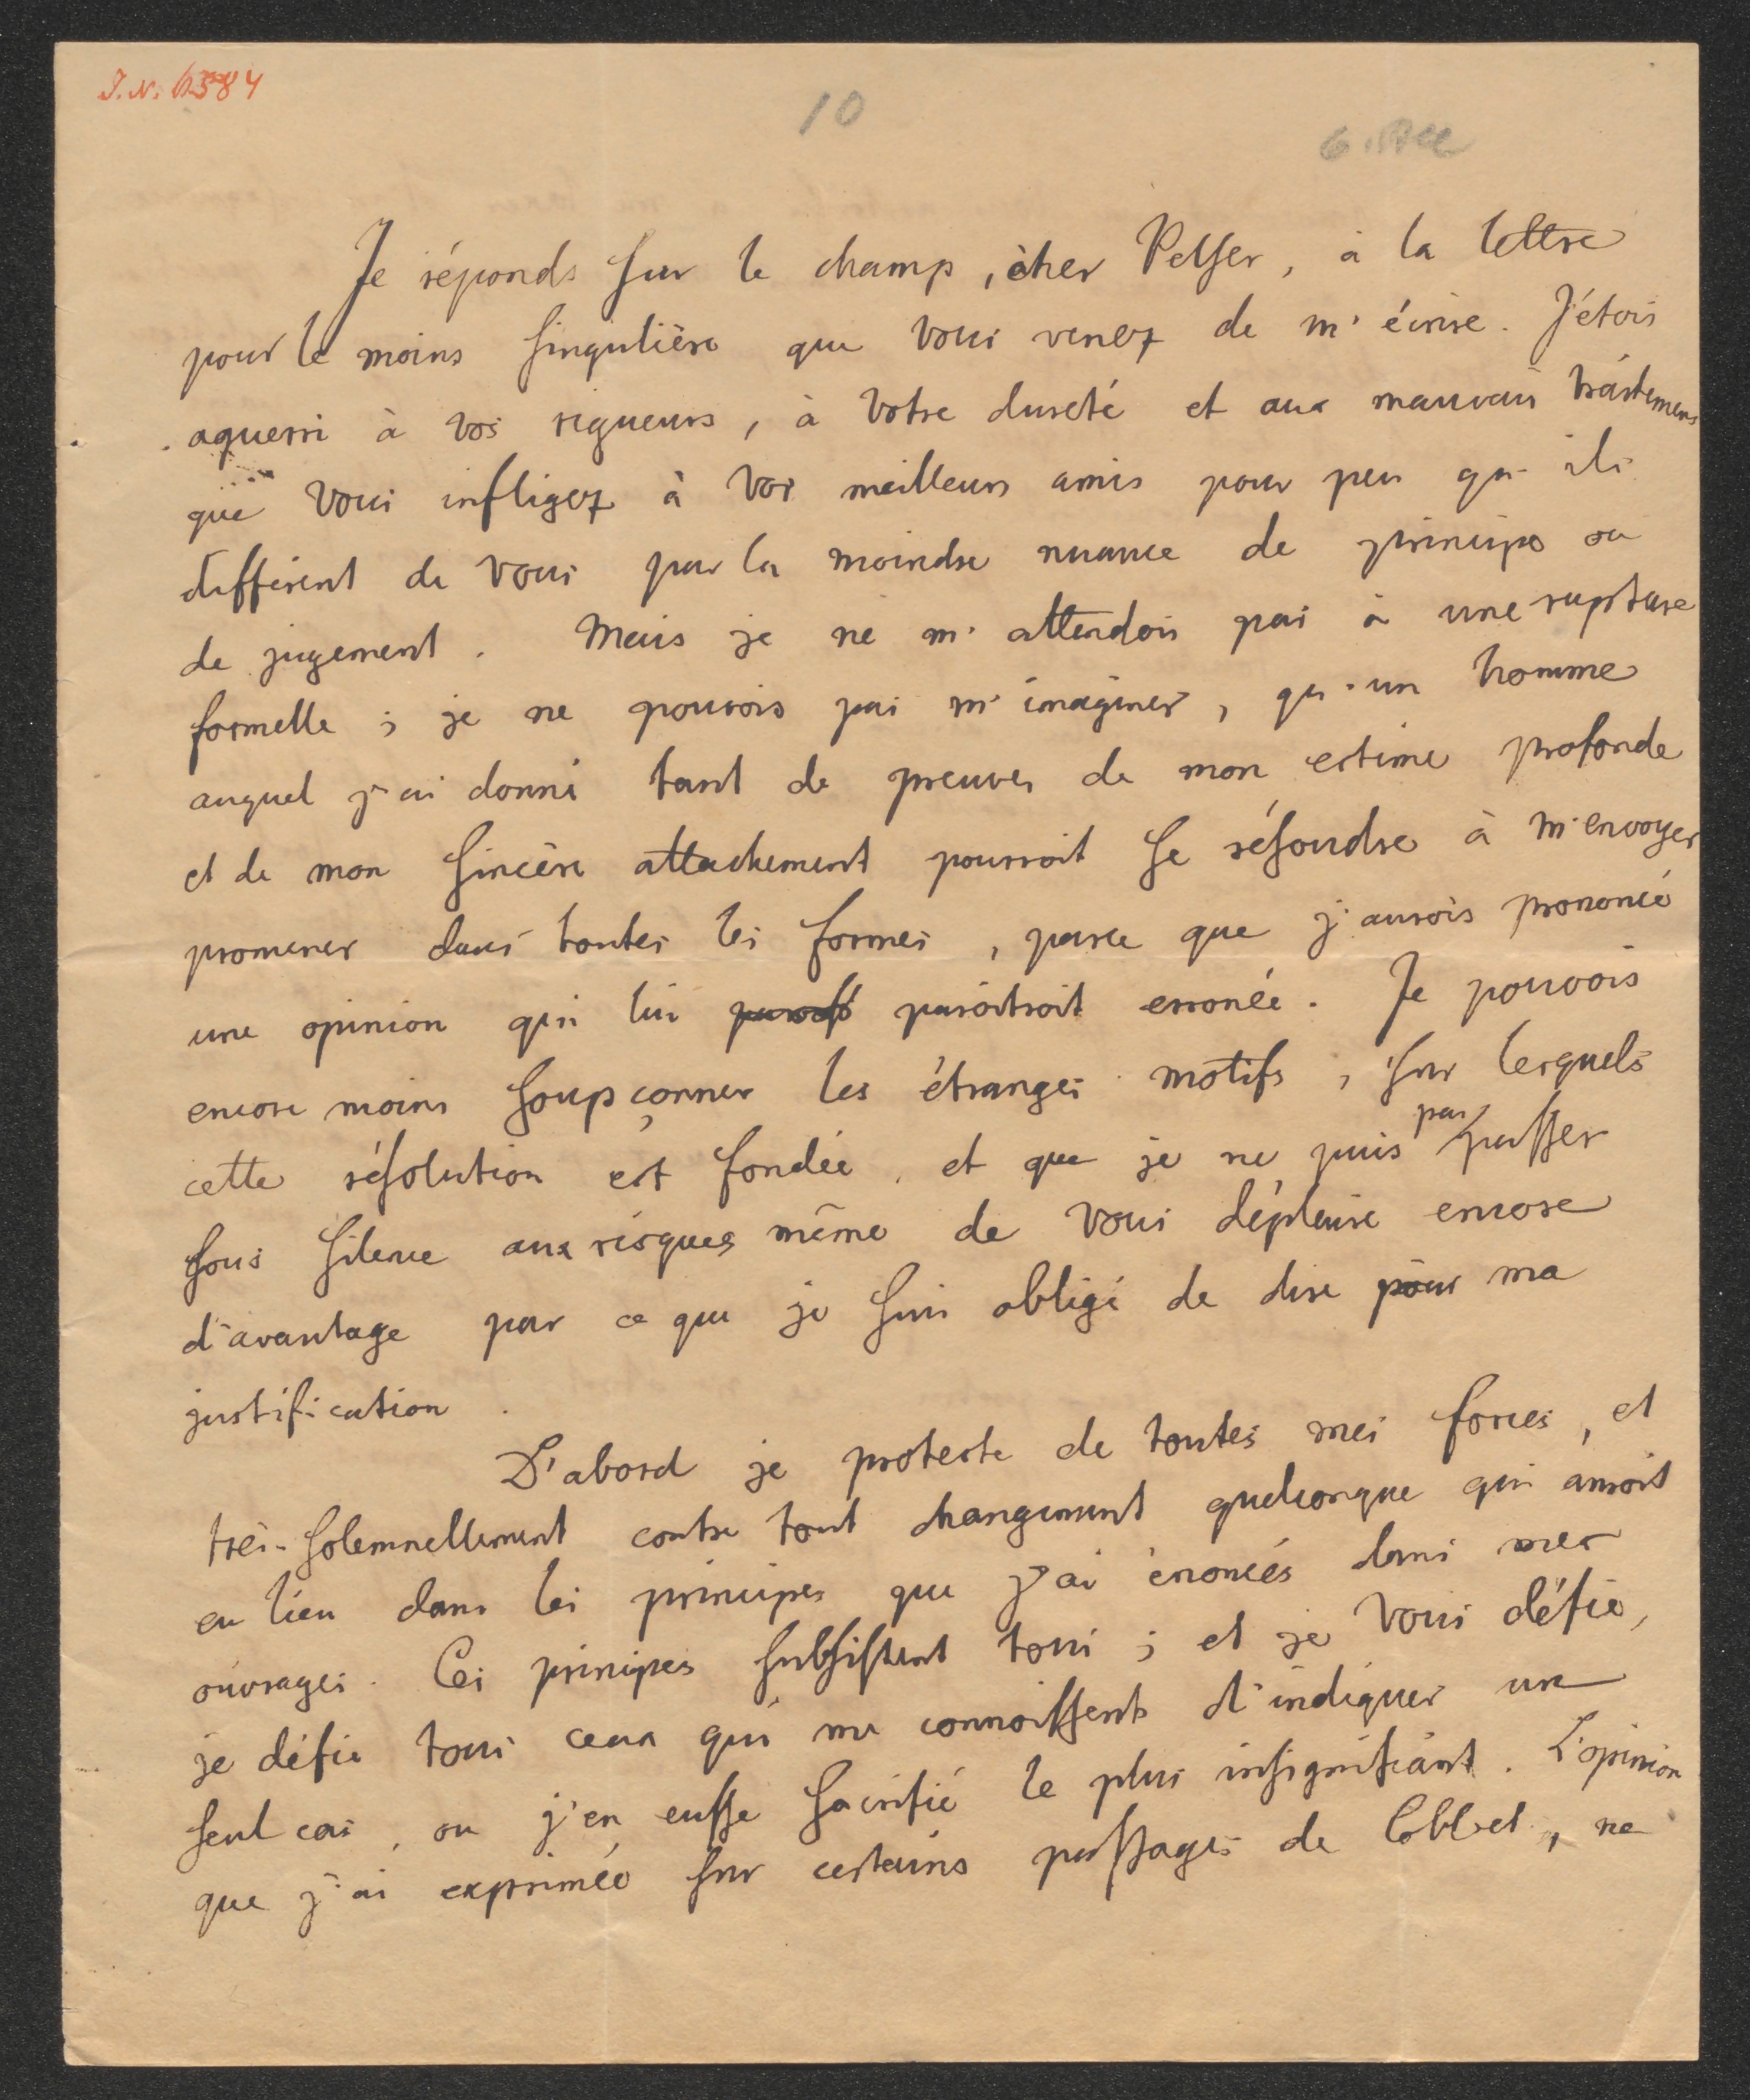 J.N. 6584
10
Je réponds sur le champ, cher Pelser, à la lettre
pour le moins singulière que vous venez de m'écrire. J'étois
aguerri à vos rigueurs, à votre dureté et aux mauvais traitemens
que vous infligez à vos meilleurs amis pour peu qu'ils
différent de vous par la moindre nuance de principe ou
de jugement. Mais je ne m'attendois pas à une rupture
formelle ; je ne pouvois pas m'imaginer, qu'un homme
auquel j'ai donné tant de preuves de mon estime profonde
et de mon sincère attachement pourroit se résoudre à m'envoyer
promener dans toutes les formes, parce que j'aurois prononcé
une opinion qui lui paroitroit erronée. Je pouvois
encore moins soupçonner les étranges motifs, sur lesquels
cette résolution est fondée, et que je ne puis pas passer
sous silence aux risques même de vous déplaire encore
d'avantage par ce que je suis obligé de dire pour ma
justification.
D'abord je proteste de toutes mes forces, et
très-solemnellement contre tout changement quelconque qui auroit
eu lieu dans les principes que j'ai énoncés dans mes
ouvrages. Ces principes subsistent tous ; et je vous défie,
je défie tous ceux qui me connoissent d'indiquer un
seul cas, ou j'en eusse sacrifié le plus insignifiant. L'opinion
que j'ai exprimée sur certains passages de Cobbet, ne